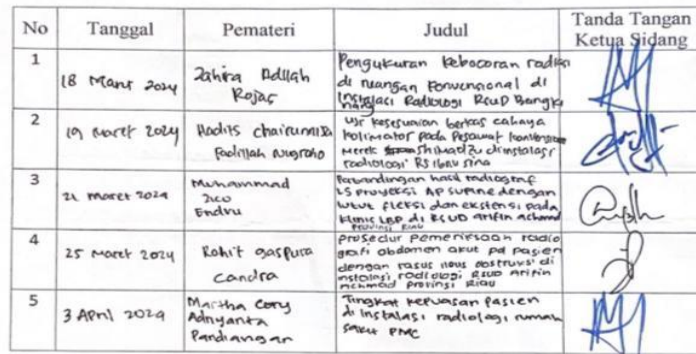 No Tanggal Pemateri Judul Tanda Tangan
Ketua Sidang
1
18 Maret 2024
Zahira Adilah
Rojas
Pengukuran Kebocoran radiasi
di ruangan konvensional di
Instalasi Radiologi RSUD Bangki
nang
2
19 maret 2024
Hadits chairunnisa
Fadillah nugroho
uji kesesuaian berkas cahaya
kolimator pada Pesawat konvensional
merek shimadzu di instalasi
radiologi RS ibnu sina
3
21 maret 2024
Muhammad
Endru
Perbandingan hasil radiograf
LS proyeksi AP supine dengan
lutut fleksi dan ekstensi pada
klinis LBP di RSUD arifin achmad
Provinsi Riau
4
25 maret 2024
Rohit gaspura
candra
prosedur pemeriksaan radio
grafi abdomen akut pd pasien
dengan kasus ileus obstruksi di
instalasi radiologi RSUD Arifin
Achmad provinsi Riau
5
3 April 2024
Martha Cory
Adriyanta
Pandiangan
Tingkat kepuasan Pasien
di Instalasi radiologi rumah
sakit PMC